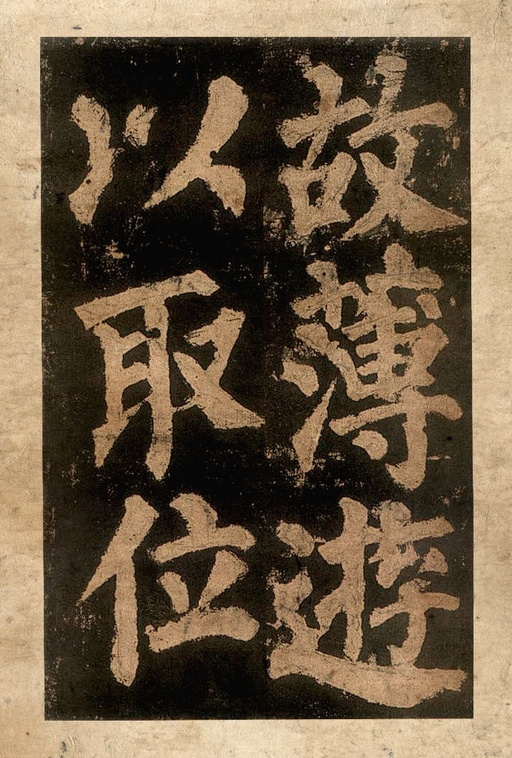 故薄遊
以取位